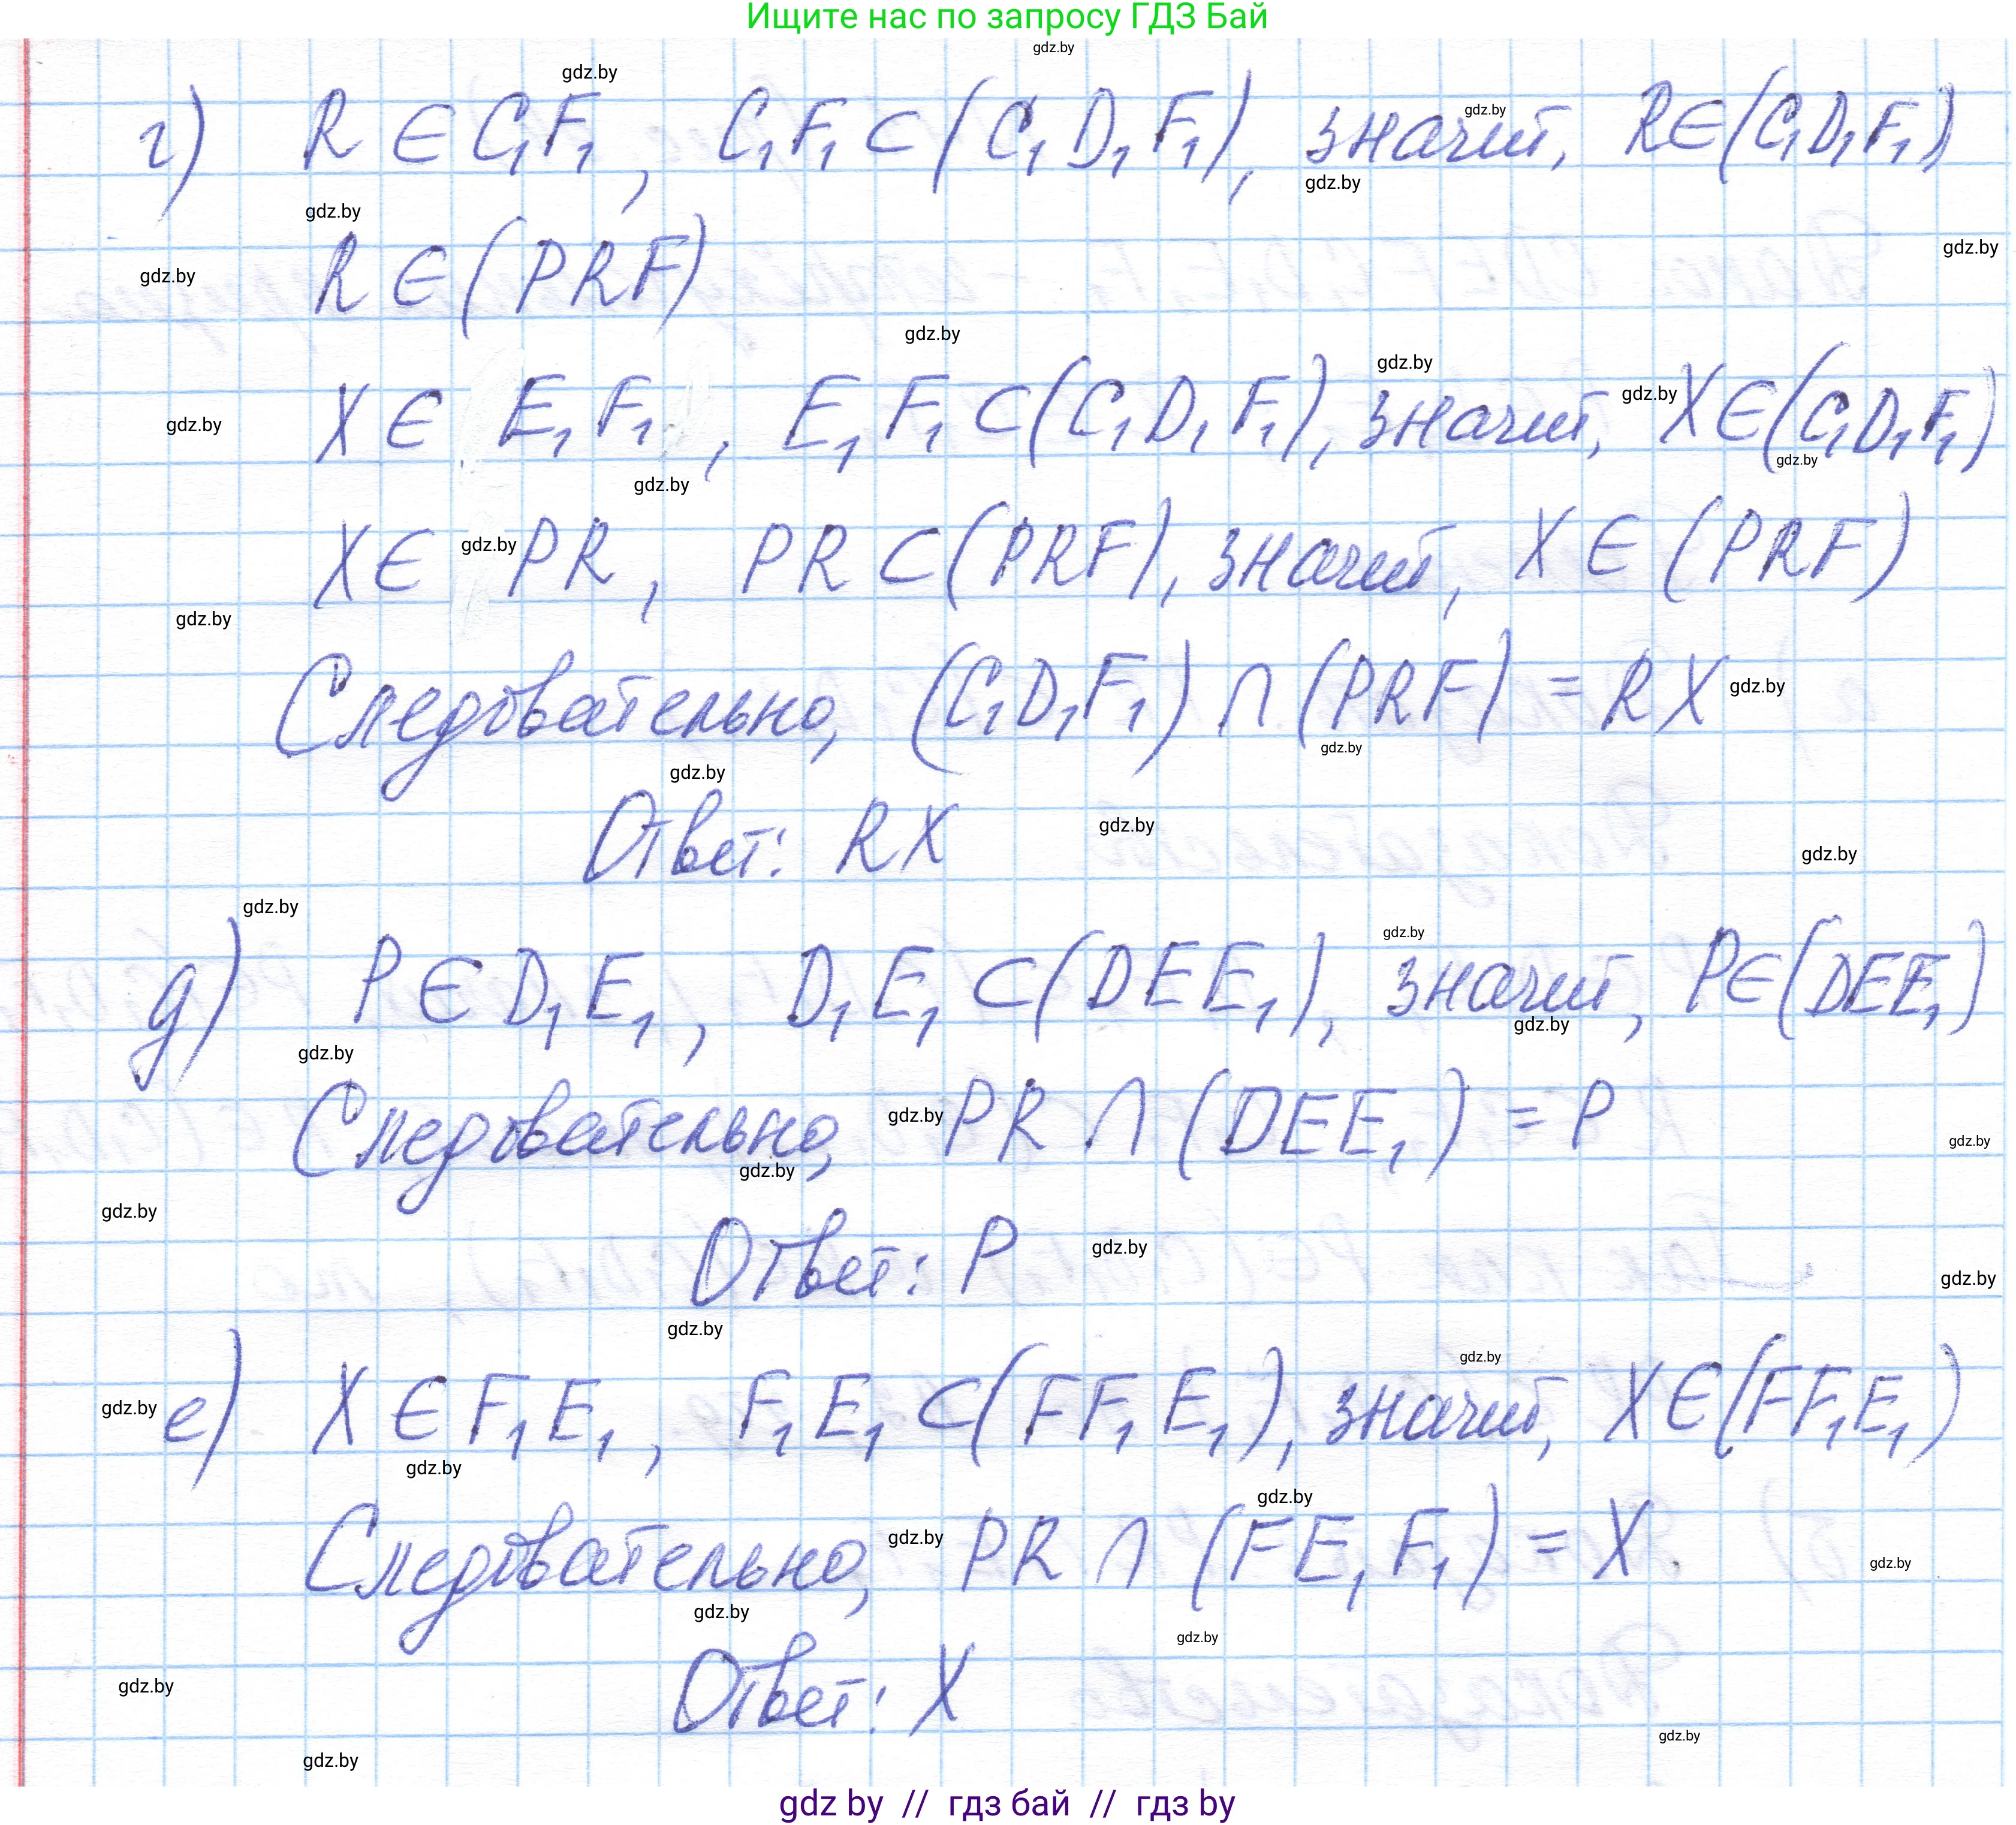 Ищите нас по запросу ГДЗ Бай
г) R ∈ C₁F₁, C₁F₁ ⊂ (C₁D₁F₁), значит, R∈(C₁D₁F₁)
R ∈ (PRF)
X ∈ E₁F₁, E₁F₁ ⊂ (C₁D₁F₁), значит, X∈(C₁D₁F₁)
X ∈ PR, PR ⊂ (PRF), значит, X ∈ (PRF)
Следовательно, (C₁D₁F₁) ∩ (PRF) = RX
Ответ: RX
д) P ∈ D₁E₁, D₁E₁ ⊂ (DEE₁), значит, P∈(DEE₁)
Следовательно, PR ∩ (DEE₁) = P
Ответ: P
е) X ∈ F₁E₁, F₁E₁ ⊂ (FF₁E₁), значит, X∈(FF₁E₁)
Следовательно, PR ∩ (FE₁F₁) = X.
Ответ: X
gdz by // гдз бай // гдз by